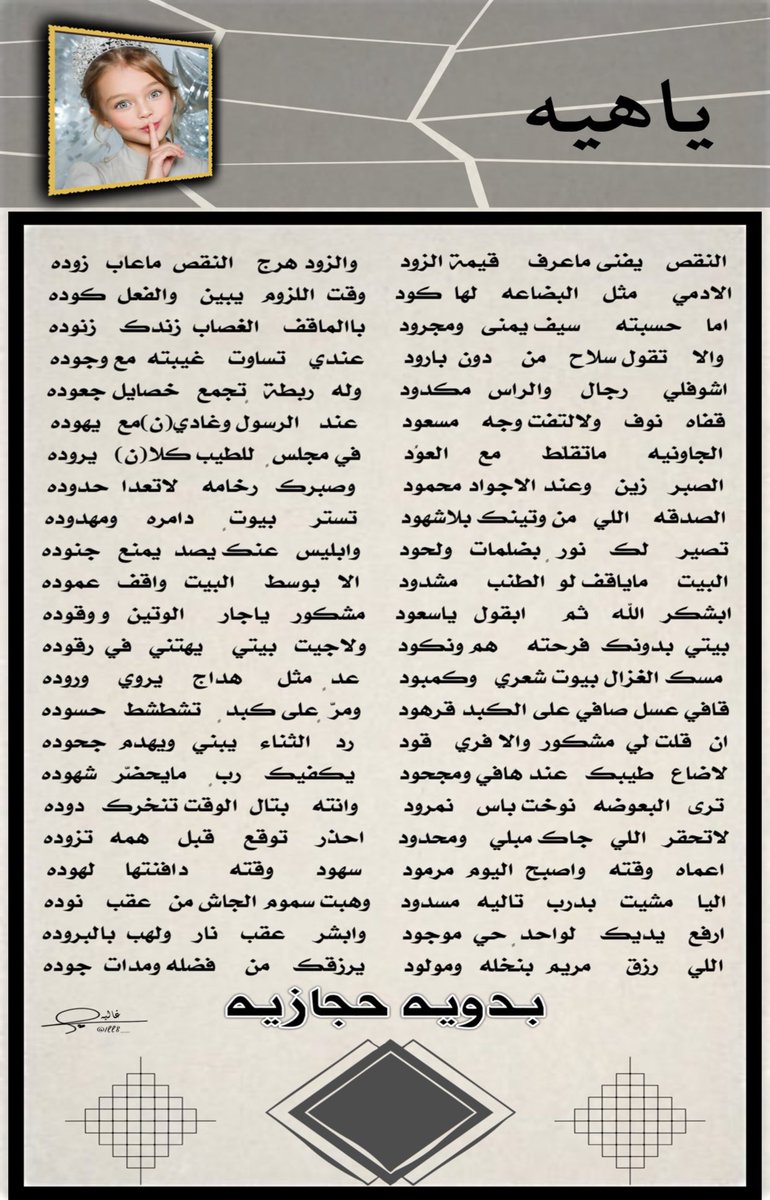 ياهيه
النقص يفنى ماعرف قيمة الزود والزود هرج النقص ماعاب زوده
الادمي مثل البضاعه لها كود وقت اللزوم يبين والفعل كوده
اما حسبته سيف يمنى ومجرود باالماقف الغصاب زندك زنوده
والا تقول سلاح من دون بارود عندي تساوت غيبته مع وجوده
اشوفلي رجال والراس مكدود وله ربطة ٍتجمع خصايل جعوده
قفاه نوف ولالتفت وجه مسعود عند الرسول وغادي(ن)مع يهوده
الجاونيه ماتقلط مع العوّد في مجلس ٍللطيب كلا(ن) يروده
الصبر زين وعند الاجواد محمود وصبرك رخامه لاتعدا حدوده
الصدقه اللي من وتينك بلاشهود تستر بيوت ٍدامره ومهدوده
تصير لك نور ٍبضلمات ولحود وابليس عنك يصد يمنع جنوده
البيت ماياقف لو الطنب مشدود الا بوسط البيت واقف عموده
ابشكر الله ثم ابقول ياسعود مشكور ياجار الوتين ووقوده
بيتي بدونك فرحته هم ونكود ولاجيت بيتي يهتني في رقوده
مسك الغزال بيوت شعري وكمبود عد ٍمثل هداج يروي وروده
قافي عسل صافي على الكبد قرهود ومرّ ٍعلى كبد ٍتشطشط حسوده
ان قلت لي مشكور والا فري قود رد الثناء يبني ويهدم جحوده
لاضاع طيبك عند هافي ومجحود يكفيك رب ٍمايحضّر شهوده
ترى البعوضه نوخت باس نمرود وانته بتال الوقت تنخرك دوده
لاتحقر اللي جاك مبلي ومحدود احذر توقع قبل همه تزوده
اعماه وقته واصبح اليوم مرمود سهود وقته دافنتها لهوده
اليا مشيت بدرب تاليه مسدود وهبت سموم الجاش من عقب نوده
ارفع يديك لواحد ٍحي موجود وابشر عقب نار ولهب بالبروده
اللي رزق مريم بنخله ومولود يرزقك من فضله ومدات جوده
بدويه حجازيه
غاليه